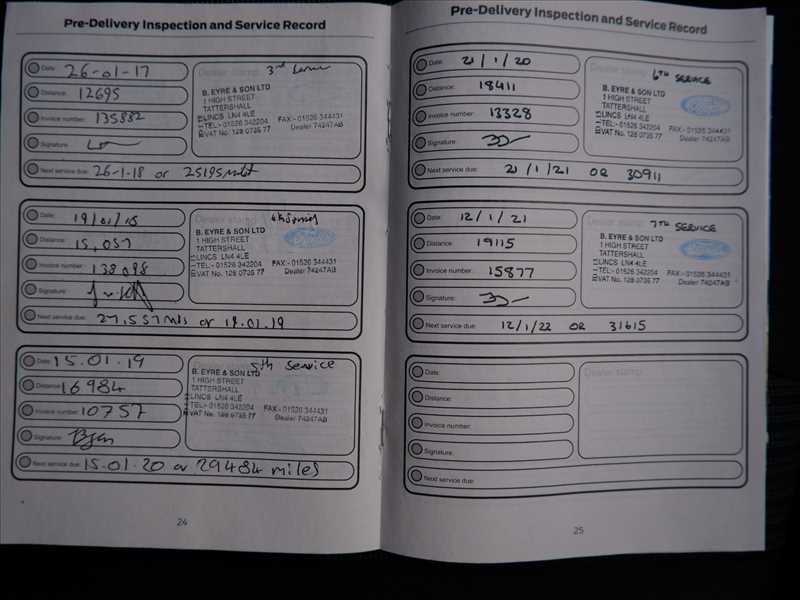 Pre-Delivery Inspection and Service Record
Date: 26-01-17
Distance: 12695
Invoice number: 135882
Signature:
Next service due: 26-1-18 or 25195
Dealer stamp 3rd
B. EYRE & SON LTD
1 HIGH STREET
TATTERSHALL
LINCS LN4 4LE
TEL:- 01526 342204 FAX:- 01526 344431
VAT No. 128 0735 77 Dealer 74247AB
Date: 19/01/18
Distance: 15,057
Invoice number: 138098
Signature:
Next service due: 27,557 mls or 19.01.19
Dealer stamp
B. EYRE & SON LTD
1 HIGH STREET
TATTERSHALL
LINCS LN4 4LE
TEL:- 01526 342204 FAX:- 01526 344431
VAT No. 128 0735 77 Dealer 74247AB
Date: 15.01.19
Distance: 16984
Invoice number: 10757
Signature:
Next service due: 15.01.20 or 29484 miles
5th Service
B. EYRE & SON LTD
1 HIGH STREET
TATTERSHALL
LINCS LN4 4LE
TEL:- 01526 342204 FAX:- 01526 344431
VAT No. 128 0735 77 Dealer 74247AB
24
Pre-Delivery Inspection and Service Record
Date: 21/1/20
Distance: 18411
Invoice number: 13328
Signature:
Next service due: 21/1/21 OR 30911
Dealer stamp 6TH SERVICE
B. EYRE & SON LTD
1 HIGH STREET
TATTERSHALL
LINCS LN4 4LE
TEL:- 01526 342204 FAX:- 01526 344431
VAT No. 128 0735 77 Dealer 74247AB
Date: 12/1/21
Distance: 19115
Invoice number: 15877
Signature:
Next service due: 12/1/22 OR 31615
Dealer stamp 7TH SERVICE
B. EYRE & SON LTD
1 HIGH STREET
TATTERSHALL
LINCS LN4 4LE
TEL:- 01526 342204 FAX:- 01526 344431
VAT No. 128 0735 77 Dealer 74247AB
Date:
Distance:
Invoice number:
Signature:
Next service due:
Dealer stamp
25